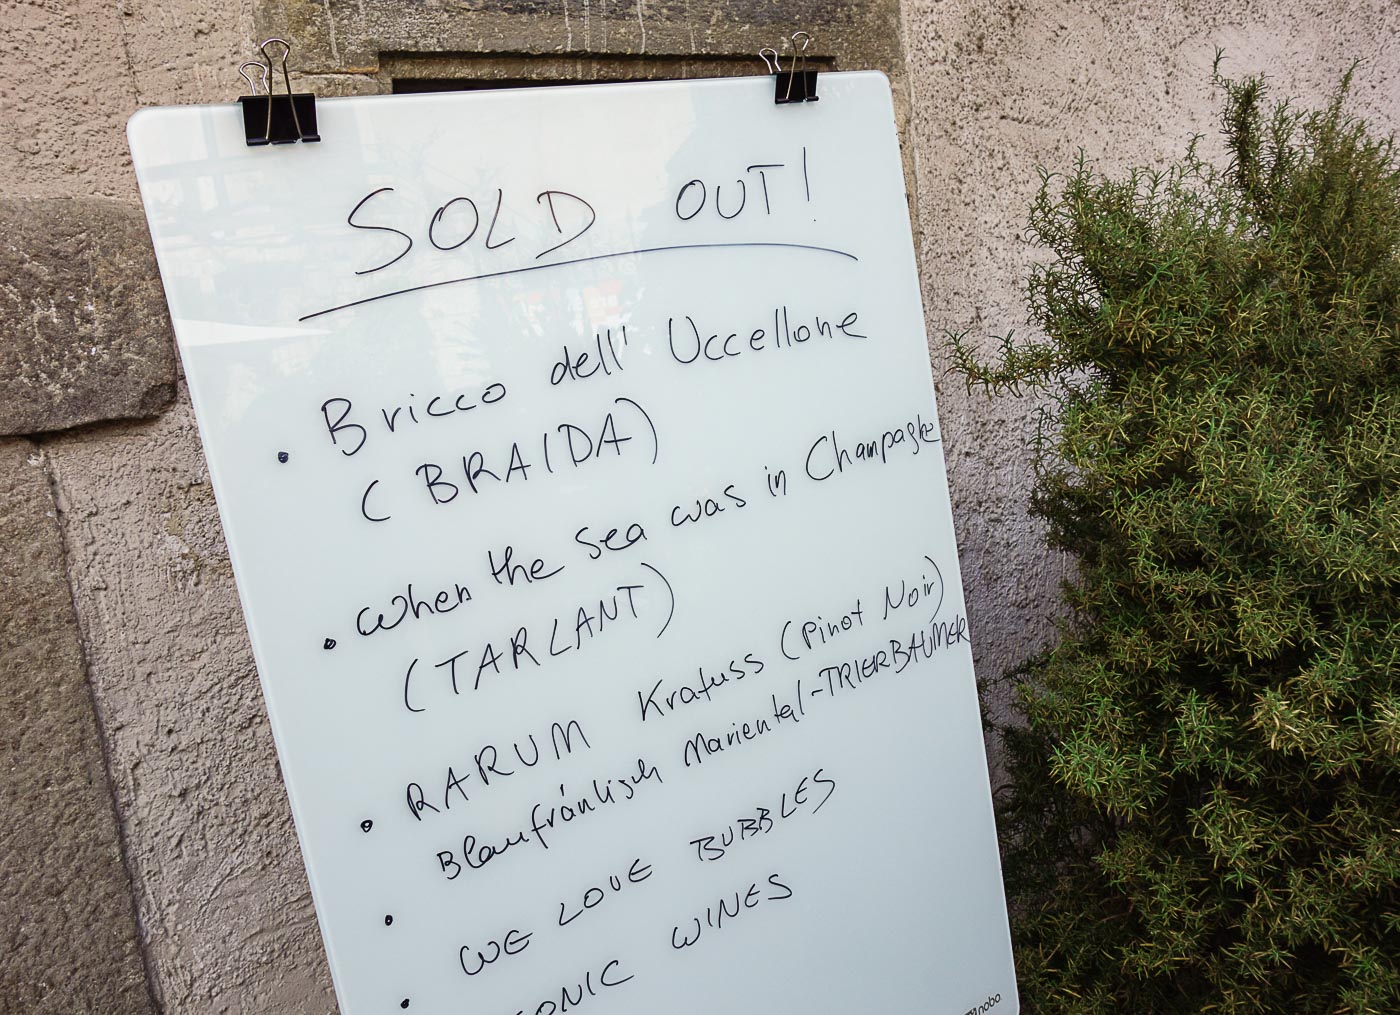 SOLD OUT!
• Bricco dell' Uccellone
(BRAIDA)
• When the sea was in Champagne
(TARLANT)
• RARUM Krafuss (Pinot Noir)
Blaufränkisch Mariental-TRIERBAUMER
• WE LOVE BUBBLES
• WINES
nobo